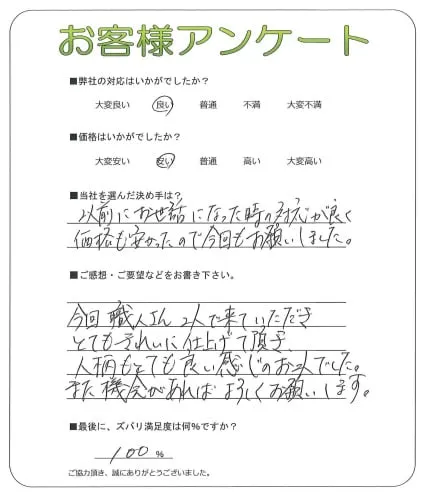 お客様アンケート
■弊社の対応はいかがでしたか？
大変良い 良い 普通 不満 大変不満
■価格はいかがでしたか？
大変安い 安い 普通 高い 大変高い
■当社を選んだ決め手は？
以前にお世話になった時の対応が良く
価格も安かったので今回もお願いしました。
■ご感想・ご要望などをお書き下さい。
今回職人さん2人で来ていただき
とてもきれいに仕上げて頂き、
人柄もとても良い感じのお二人でした。
また機会があればよろしくお願いします。
■最後に、ズバリ満足度は何%ですか？
100 %
ご協力頂き、誠にありがとうございました。